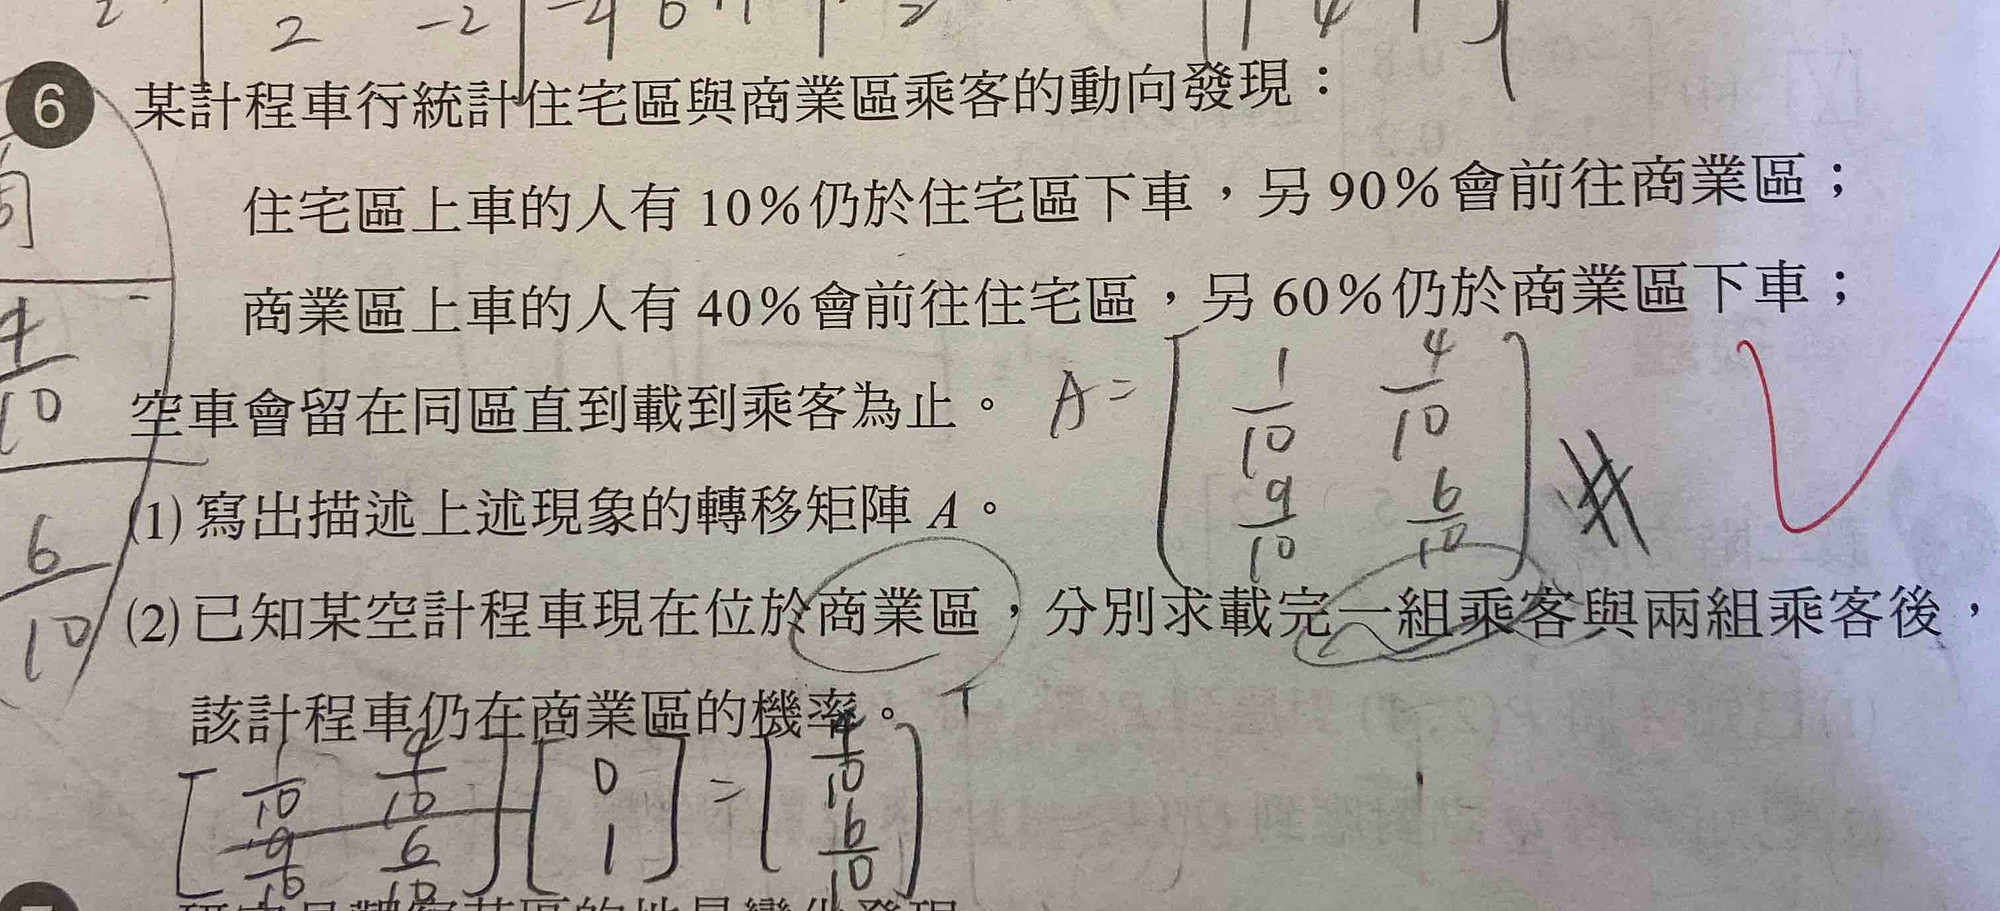 2 -2 -4 6
6 某計程車行統計住宅區與商業區乘客的動向發現：
住宅區上車的人有 10％仍於住宅區下車，另 90％會前往商業區；
商業區上車的人有 40％會前往住宅區，另 60％仍於商業區下車；
空車會留在同區直到載到乘客為止。
A = [ 1/10 4/10
9/10 6/10 ]
4/10
6/10
(1) 寫出描述上述現象的轉移矩陣 A。
(2) 已知某空計程車現在位於商業區，分別求載完一組乘客與兩組乘客後，
該計程車仍在商業區的機率。
[ 1/10 4/10 ] [ 0 ] = [ 4/10 ]
[ 9/10 6/10 ] [ 1 ] [ 6/10 ]